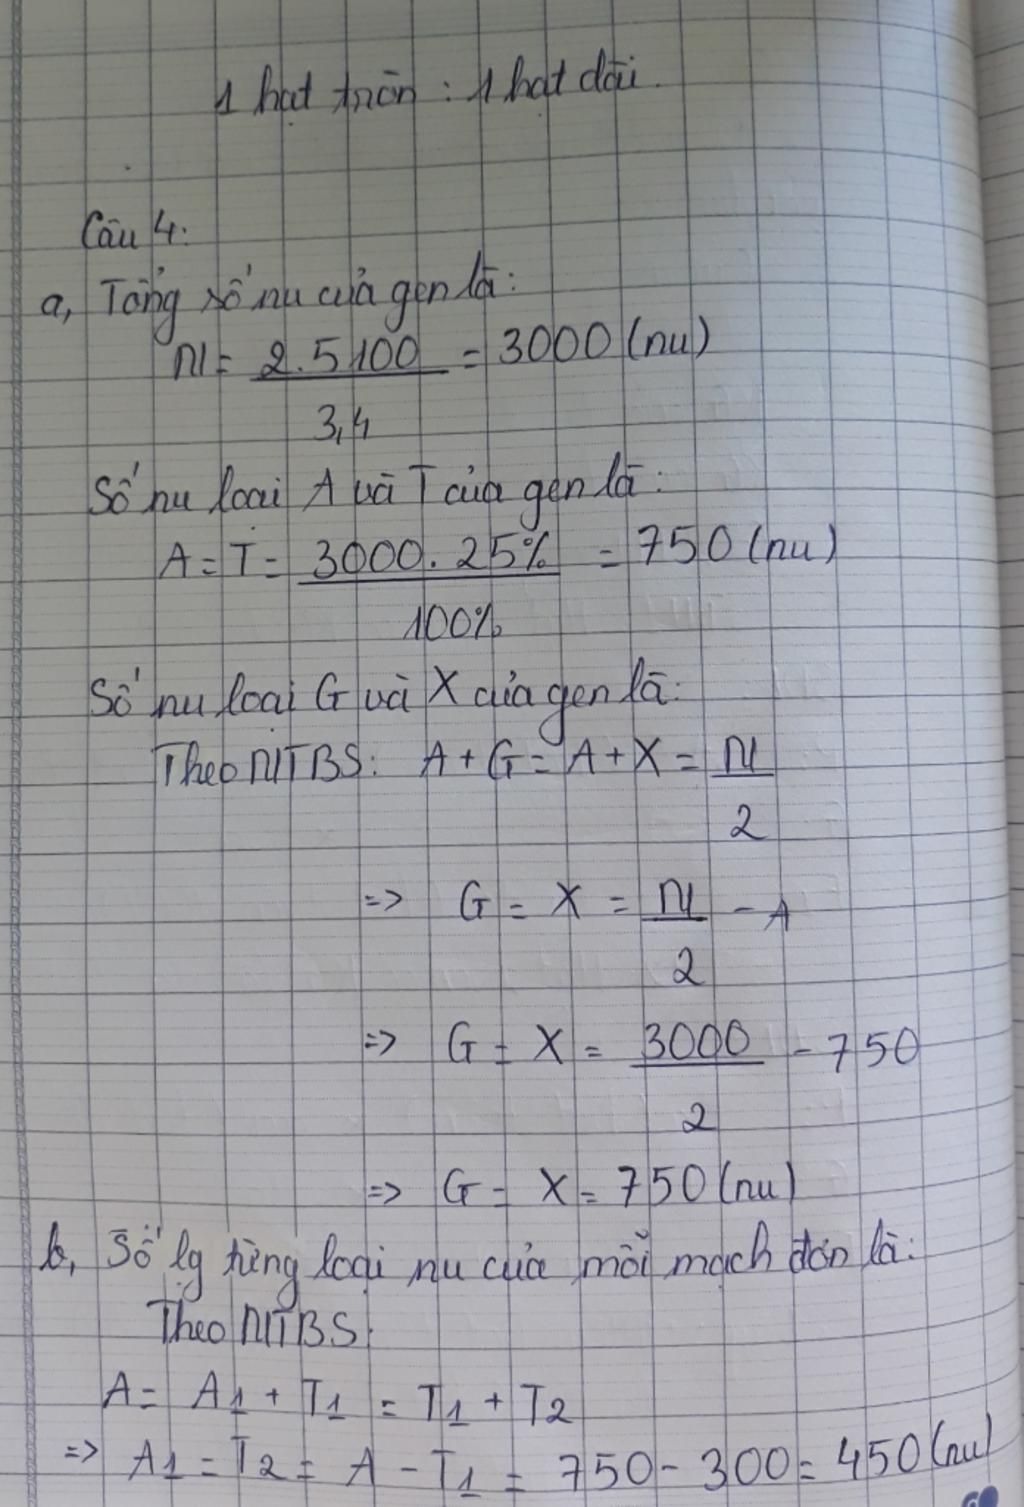 1 hạt tròn : 1 hạt dài.
Câu 4:
a, Tổng số nu của gen là:
N = 2.5100 / 3,4 = 3000 (nu)
Số nu loại A và T của gen là:
A = T = 3000.25% / 100% = 750 (nu)
Số nu loại G và X của gen là:
Theo NTBS: A + G = A + X = N / 2
=> G = X = N / 2 - A
=> G = X = 3000 / 2 - 750
=> G = X = 750 (nu)
b, Số lg từng loại nu của mỗi mạch đơn là:
Theo NTBS:
A = A1 + T1 = T1 + T2
=> A1 = T2 = A - T1 = 750 - 300 = 450 (nu)